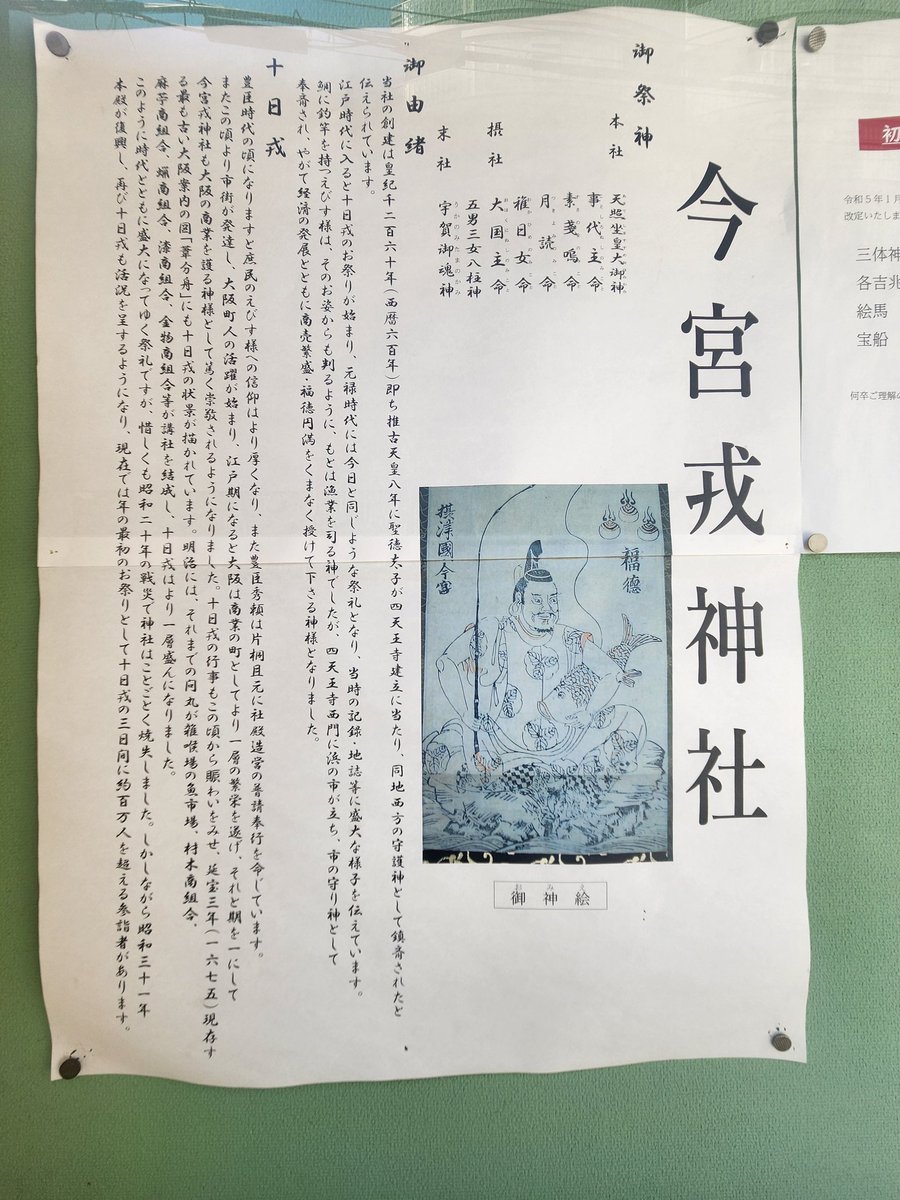 今宮戎神社
御祭神
本社
天照坐皇大御神
事代主命
素戔嗚命
月読命
稚日女命
摂社
大国主命
五男三女八柱神
末社
宇賀御魂神
うかのみたまのかみ
福徳
摂津國今宮
御神絵
おみえ
御由緒
当社の創建は皇紀千二百六十年(西暦六百年)即ち推古天皇八年に聖徳太子が四天王寺建立に当たり、同地西方の守護神として鎮斎されたと
伝えられています。
江戸時代に入ると十日戎のお祭りが始まり、元禄時代には今日と同じような祭礼となり、当時の記録・地誌等に盛大な様子を伝えています。
鯛に釣竿を持つえびす様は、そのお姿からも判るように、もとは漁業を司る神でしたが、四天王寺西門に浜の市が立ち、市の守り神として
奉斎され やがて経済の発展とともに商売繁盛・福徳円満をくまなく授けて下さる神様となりました。
十日戎
豊臣時代の頃になりますと庶民のえびす様への信仰はより厚くなり、また豊臣秀頼は片桐且元に社殿造営の普請奉行を命じています。
またこの頃より市街が発達し、大阪町人の活躍が始まり、江戸期になると大阪は商業の町としてより一層の繁栄を遂げ、それと期を一にして
今宮戎神社も大阪の商業を護る神様として篤く崇敬されるようになりました。十日戎の行事もこの頃から賑わいをみせ、延宝三年(一六七五)現存す
る最も古い大阪案内の図「葦分舟」にも十日戎の状景が描かれています。明治には、それまでの問丸が雑喉場の魚市場、材木商組合、
麻苧商組合、蝋商組合、漆商組合、金物商組合等が講社を結成し、十日戎はより一層盛んになりました。
このように時代とともに盛大になってゆく祭礼ですが、惜しくも昭和二十年の戦災で神社はことごとく焼失しました。しかしながら昭和三十一年
本殿が復興し、再び十日戎も活況を呈するようになり、現在では年の最初のお祭りとして十日戎の三日間に約百万人を超える参詣者があります。
初
令和5年1月
改定いたしま
三体神
各吉兆
絵馬
宝船
何卒ご理解の